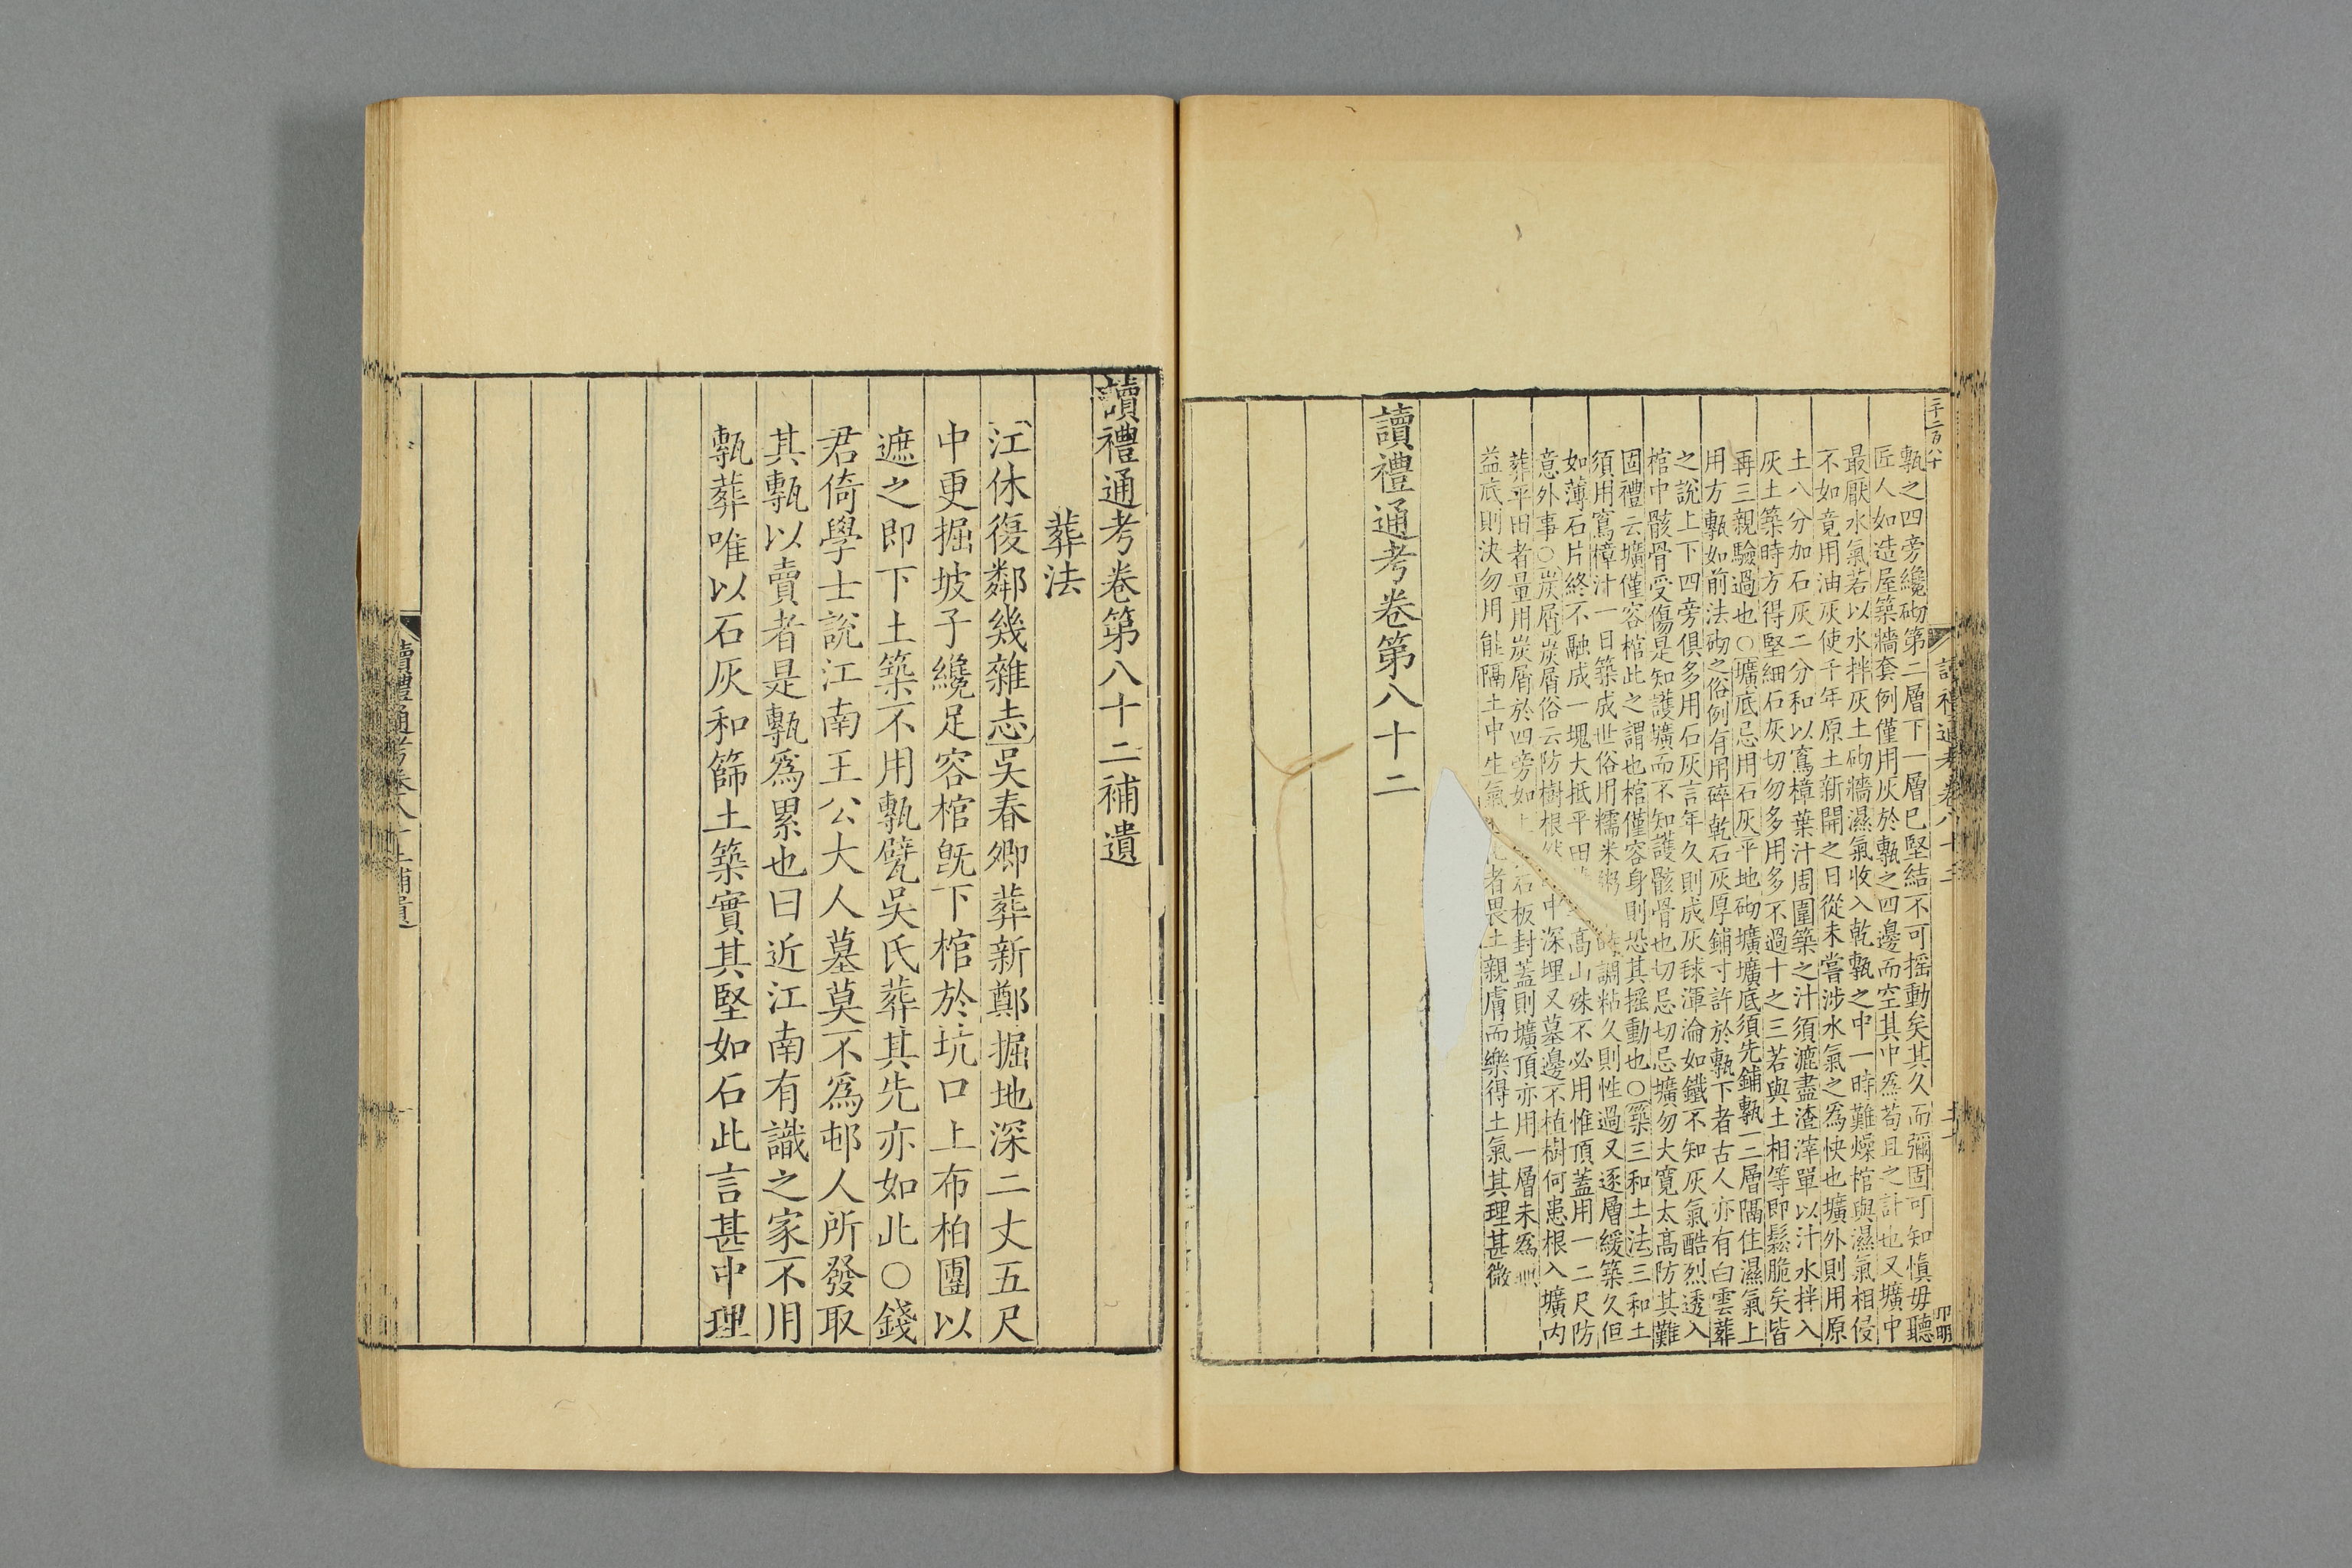 甎之四旁纔砌第二層下一層已堅結不可摇動矣其久而彌固可知愼毋聽
匠人如造屋築牆套例僅用灰於甎之四邊而空其中爲苟且之計也又壙中
最厭水氣若以水拌灰土砌牆濕氣收入乾甎之中一時難燥棺與濕氣相侵
不如竟用油灰使千年原土新開之日從未嘗涉水氣之爲快也壙外則用原
土八分加石灰二分和以窵樟葉汁周圍築之汁須漉盡渣滓單以汁水拌入
灰土築時方得堅細石灰切勿多用多不過十之三若與土相等即鬆脆矣皆
再三親驗過也〇壙底忌用石灰平地砌壙壙底須先鋪甎一二層隔住濕氣上
用方甎如前法砌之俗例有用碎乾石灰厚鋪寸許於甎下者古人亦有白雲葬
之說上下四旁俱多用石灰言年久則成灰毬渾淪如鐵不知灰氣酷烈透入
棺中骸骨受傷是知護壙而不知護骸骨也切忌切忌壙勿大寛太高防其難
固禮云壙僅容棺此之謂也棺僅容身則恐其摇動也〇築三和土法三和土
須用窵樟汁一日築成世俗用糯米粥調粘久則性過又逐層緩築久但
如薄石片終不融成一塊大抵平田高山殊不必用惟頂蓋用一二尺防
意外事〇炭屑炭屑俗云防樹根中深埋又墓邊不植樹何患根入壙內
葬平田者量用炭屑於四旁如石板封蓋則壙頂亦用一層未爲
益底則決勿用能隔土中生氣者畏土親膚而樂得土氣其理甚微
讀禮通考卷第八十二
讀禮通考卷第八十二補遺
葬法
江休復鄰幾雜志吳春卿葬新鄭掘地深二丈五尺
中更掘坡子纔足容棺旣下棺於坑口上布柏團以
遮之即下土築不用甎甓吳氏葬其先亦如此〇錢
君倚學士說江南王公大人墓莫不爲邨人所發取
其甎以賣者是甎爲累也曰近江南有識之家不用
甎葬唯以石灰和篩土築實其堅如石此言甚中理
讀禮通考卷八十二補遺